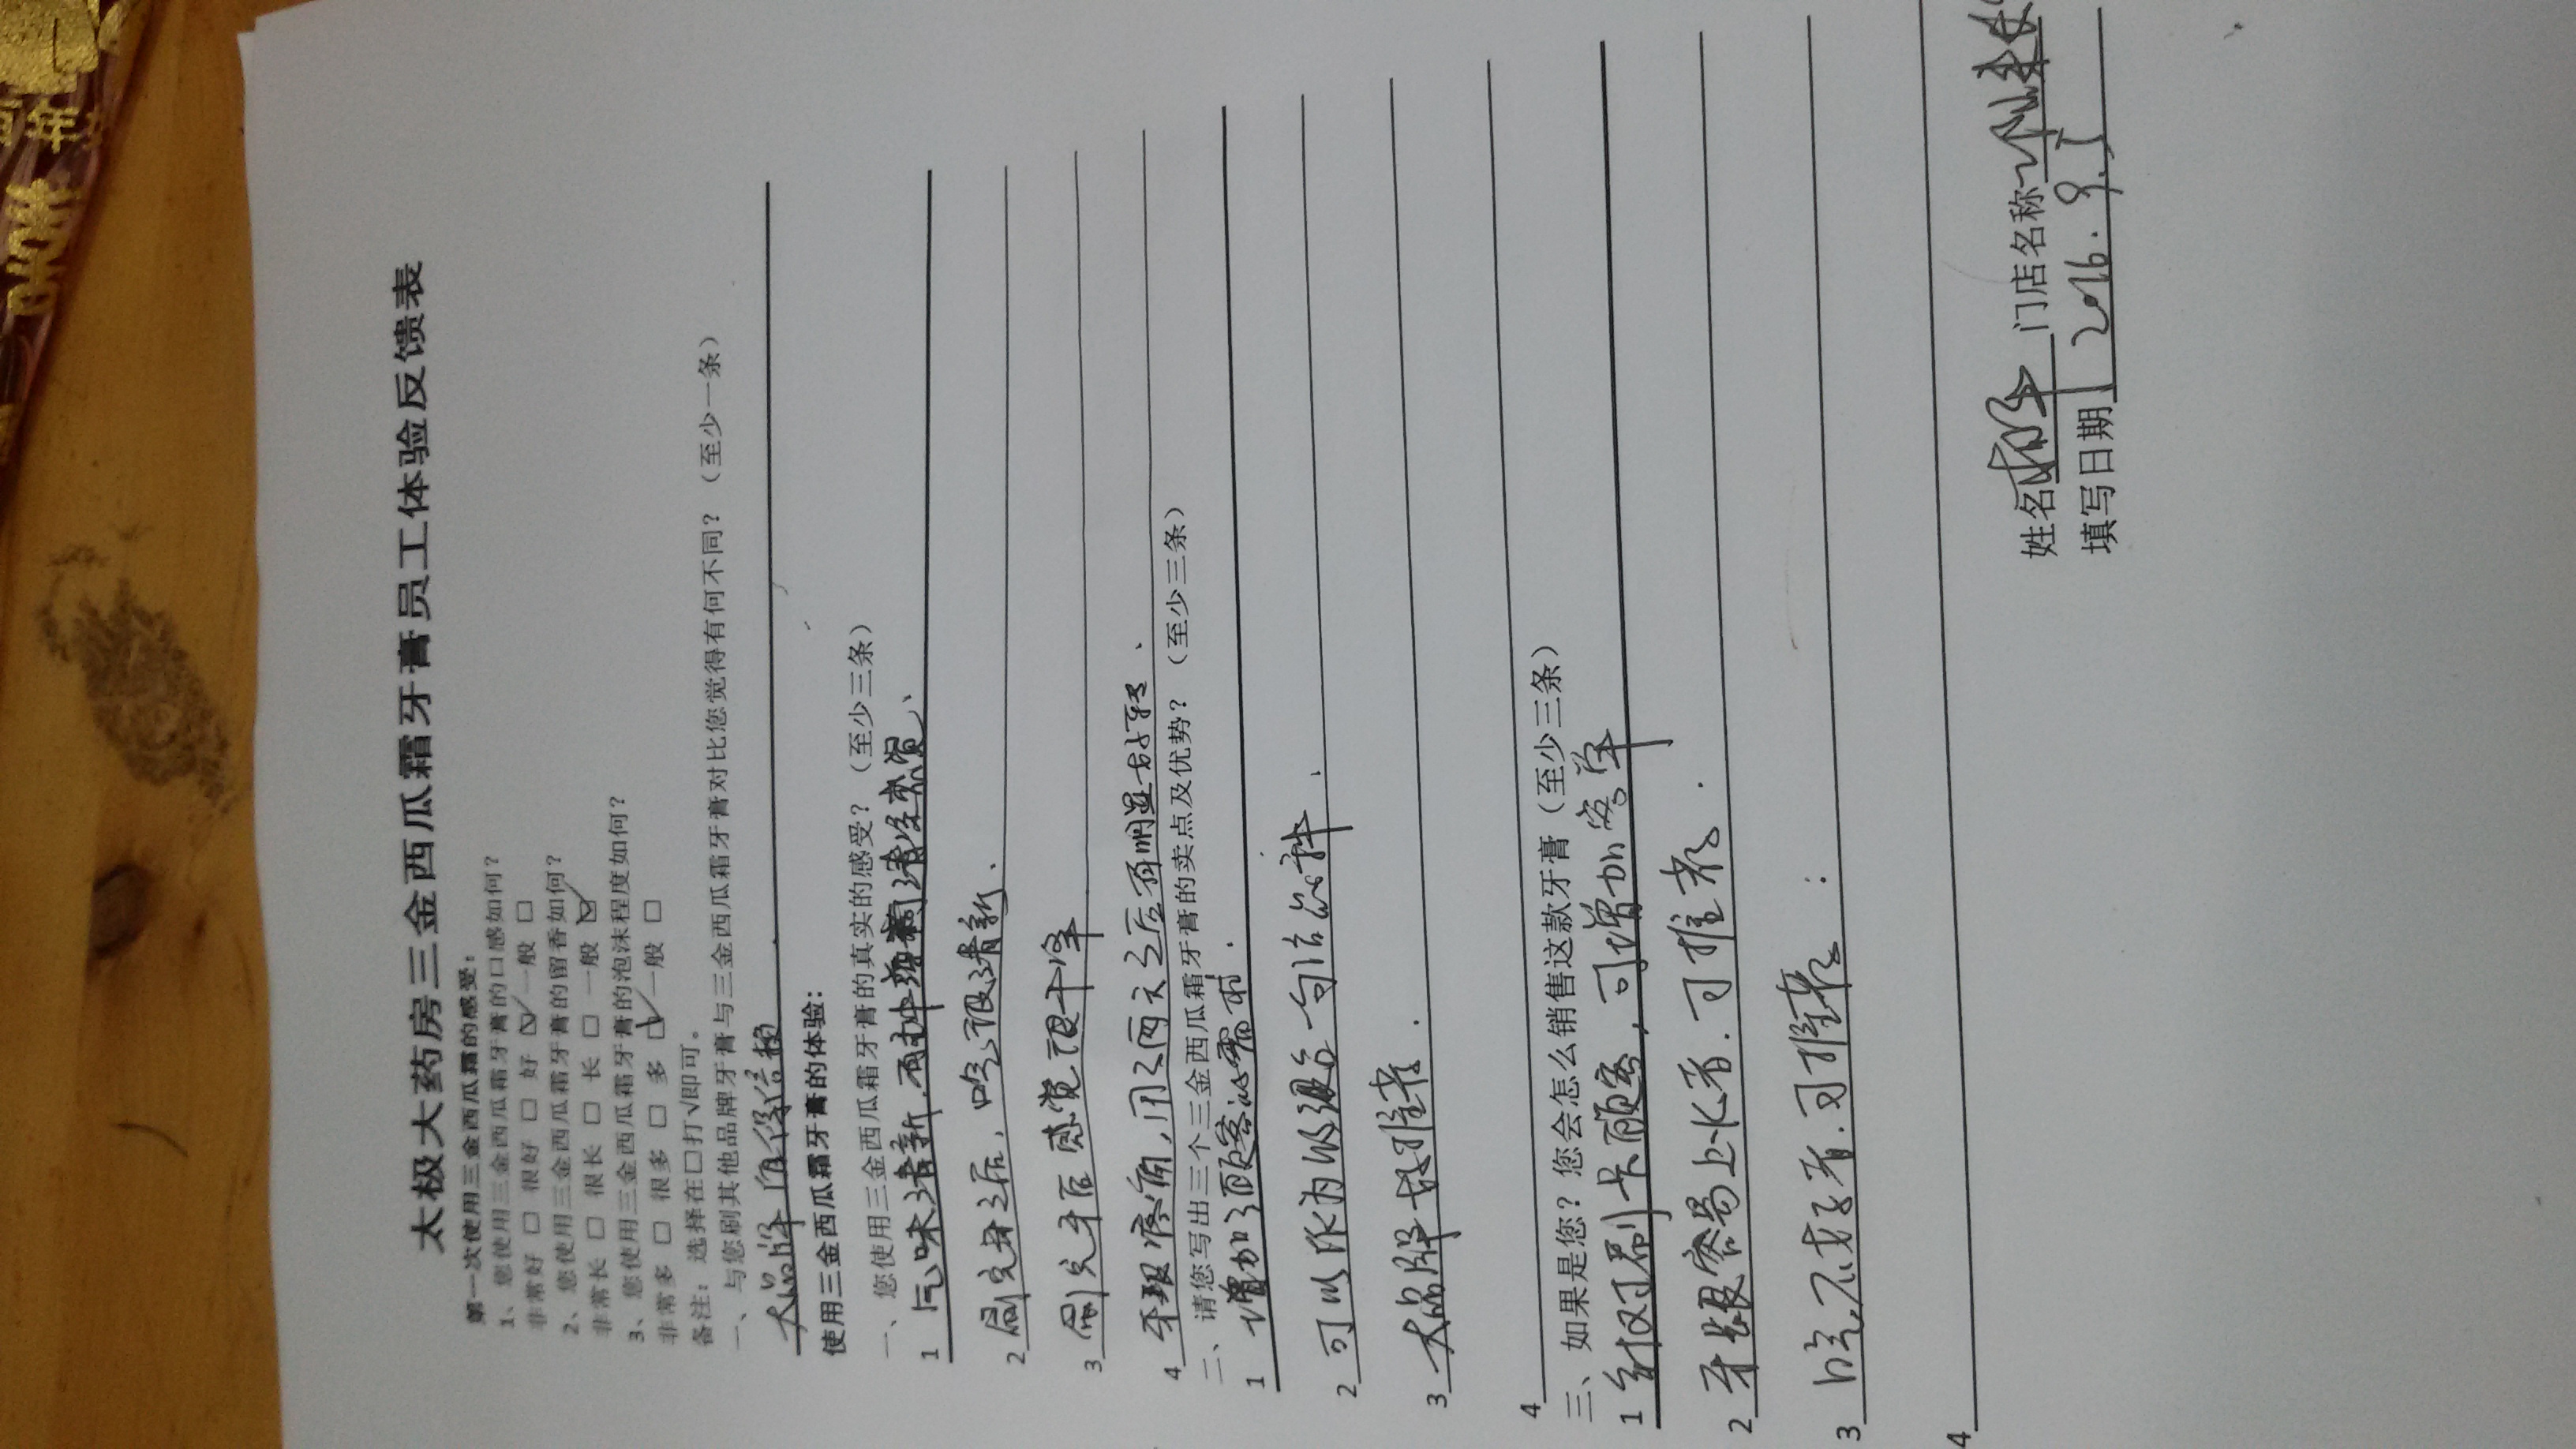 太极大药房三金西瓜霜牙膏员工体验反馈表
第一次使用三金西瓜霜的感受：
1、您使用三金西瓜霜牙膏的口感如何？
非常好 □ 很好 □ 好 ☑ 一般 □
2、您使用三金西瓜霜牙膏的留香如何？
非常长 □ 很长 □ 长 □ 一般 ☑
3、您使用三金西瓜霜牙膏的泡沫程度如何？
非常多 □ 很多 □ 多 ☑ 一般 □
备注：选择在□打√即可。
一、与您刷其他品牌牙膏与三金西瓜霜牙膏对比您觉得有何不同？（至少一条）
大品牌 值得信赖
使用三金西瓜霜牙膏的体验：
一、您使用三金西瓜霜牙膏的真实的感受？（至少三条）
1 气味清新.有种薄荷清凉感觉、
2 刷完牙之后，口气很清新.
3 刷完牙后感觉很干净
4 牙龈疼痛,用了两天之后有明显好转、
二、请您写出三个三金西瓜霜牙膏的卖点及优势？（至少三条）
1 增加了顾客的需求.
2 可以作为
3 大品牌 好推荐.
4
三、如果是您？您会怎么销售这款牙膏（至少三条）
1 针对刷卡顾客，可增加客单
2 牙龈容易上火者.可推荐.
3 口气不好者.可推荐.
4
姓名 门店名称
填写日期 2016.9.1
年